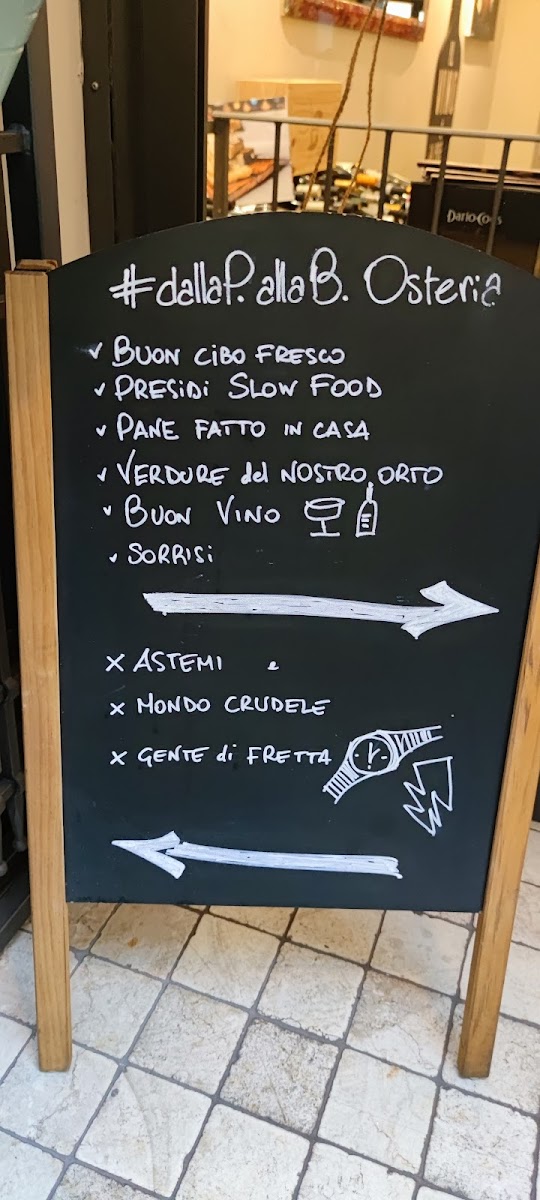 Dario Co
#dallaP.allaB. Osteria
✓ BUON CIBO FRESCO
✓ PRESIDI SLOW FOOD
✓ PANE FATTO IN CASA
✓ VERDURE del NOSTRO ORTO
✓ BUON VINO
✓ SORRISI
x ASTEMI
x MONDO CRUDELE
x GENTE di FRETTA